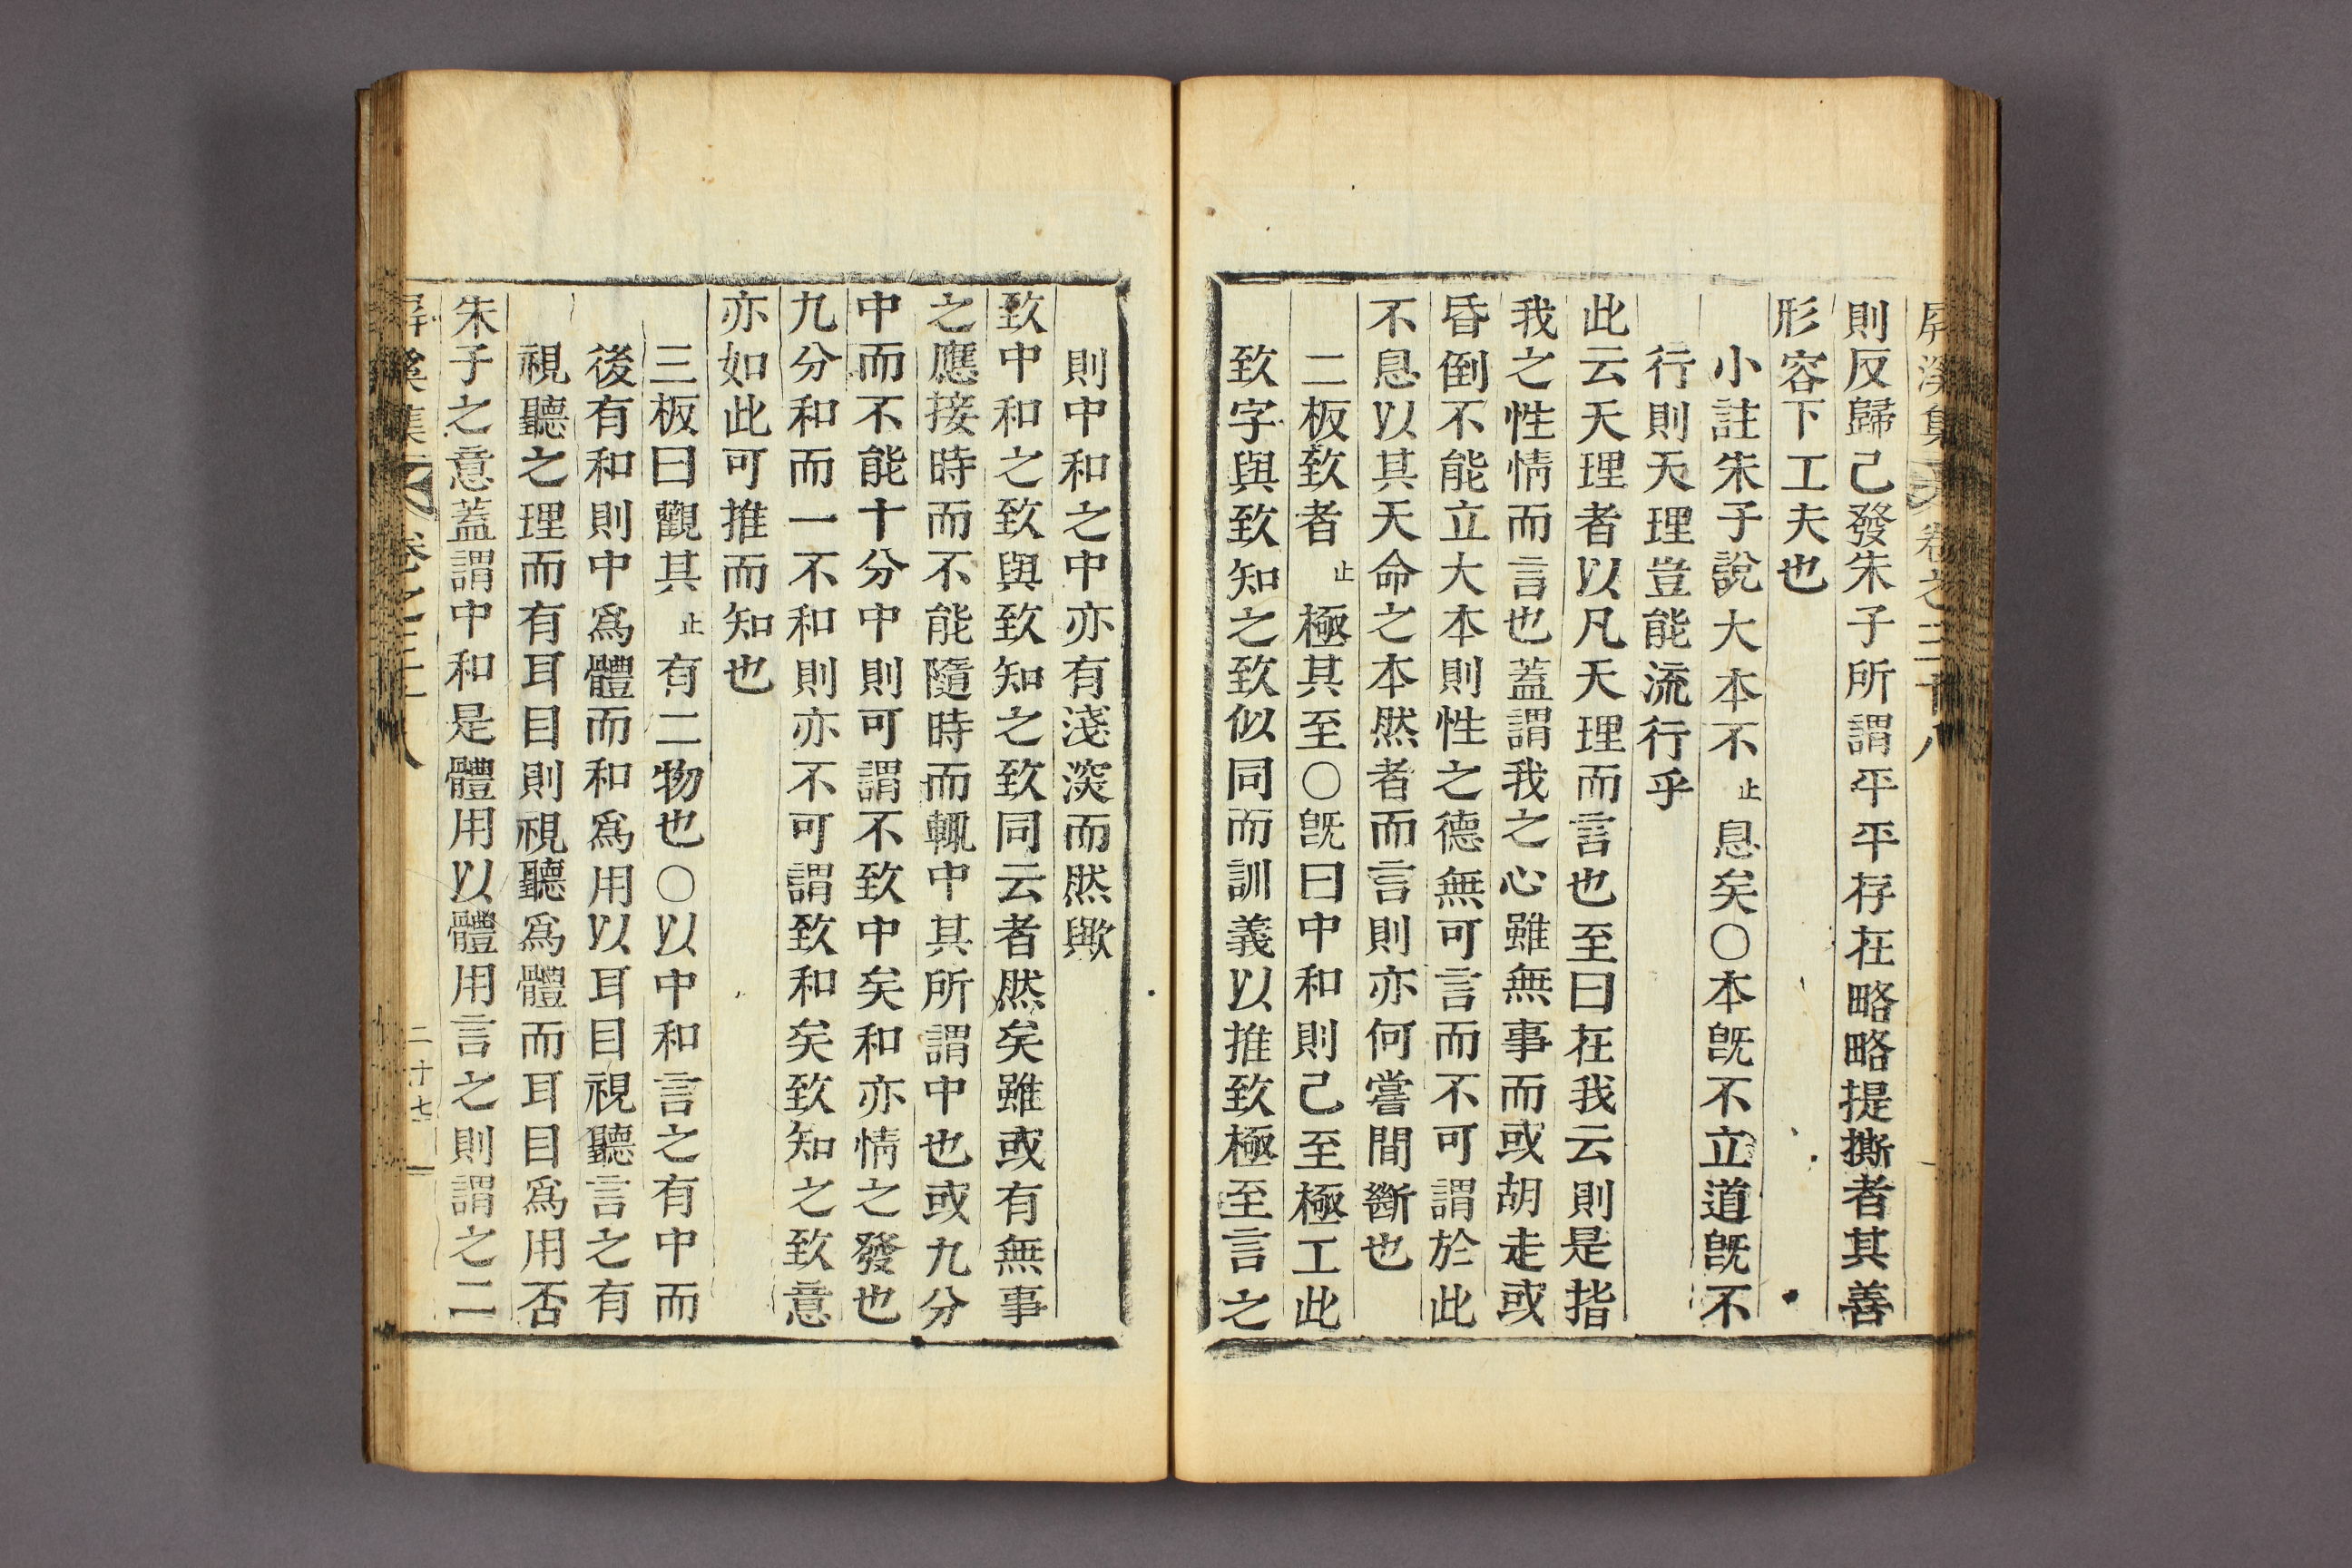 屏溪集 卷之三十八
則反歸己發朱子所謂平平存在略略提撕者其善
形容下工夫也
小註朱子說大本不止息矣○本旣不立道旣不
行則天理豈能流行乎
此云天理者以凡天理而言也至曰在我云則是指
我之性情而言也蓋謂我之心雖無事而或胡走或
昏倒不能立大本則性之德無可言而不可謂於此
不息以其天命之本然者而言則亦何嘗間斷也
二板致者止極其至○旣曰中和則己至極工此
致字與致知之致似同而訓義以推致極至言之
則中和之中亦有淺深而然歟
致中和之致與致知之致同云者然矣雖或有無事
之應接時而不能隨時而輒中其所謂中也或九分
中而不能十分中則可謂不致中矣和亦情之發也
九分和而一不和則亦不可謂致和矣致知之致意
亦如此可推而知也
三板曰觀其止有二物也○以中和言之有中而
後有和則中爲體而和爲用以耳目視聽言之有
視聽之理而有耳目則視聽爲體而耳目爲用否
朱子之意蓋謂中和是體用以體用言之則謂之二
屏溪集 卷之三十八 二十七